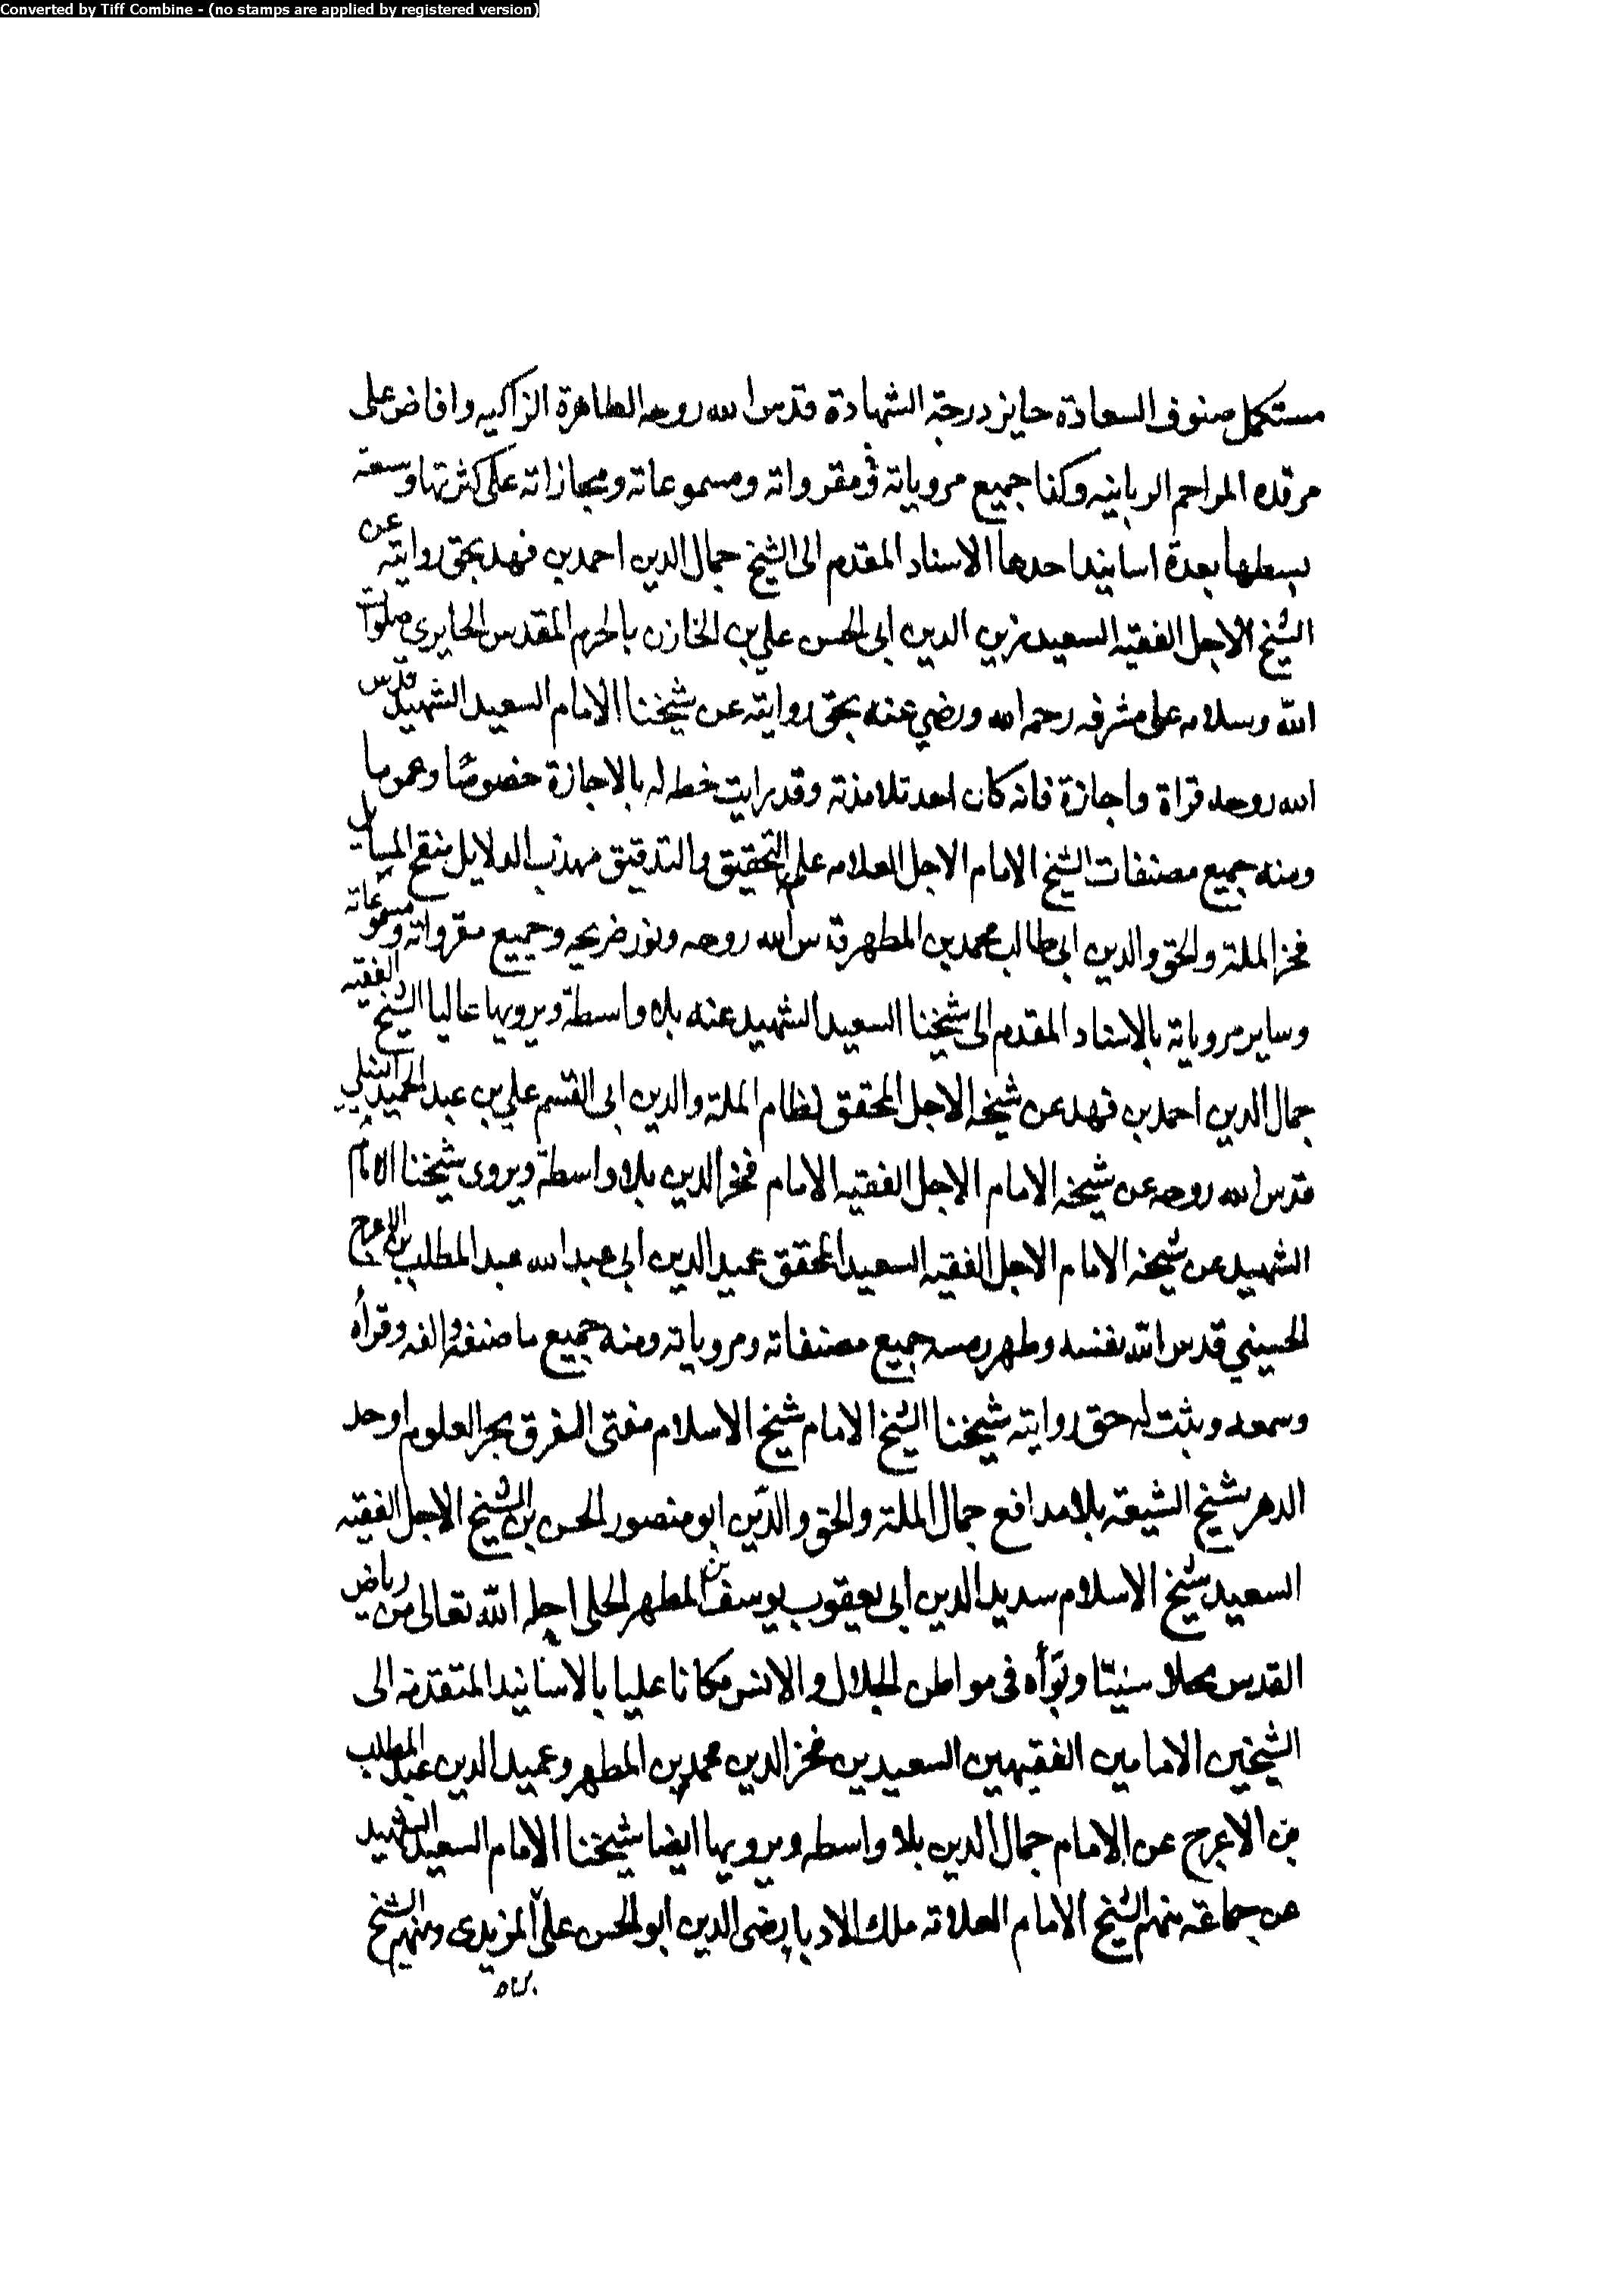 Converted by Tiff Combine - (no stamps are applied by registered version)
مستكمل صنوف السعادة حايز درجة الشهادة قدس الله روحه الطاهرة الزاكيه وافاض على
مرقده المراحم الربانيه وكذا جميع مروياته ومقرواته ومسموعاته ومجازاته على كثرتها وسعة
بسطها بعدة اسانيد احدها الاسناد المقدم الى الشيخ جمال الدين احمد بن فهد بحق روايته عن
الشيخ الاجل الفقيه السعيد زين الدين ابى الحسن علي بن الخازن بالحرم المقدس الحايري صلوات
الله وسلامه على مشرفه رحمه الله ورضي عنه بحق روايته عن شيخنا الامام السعيد الشهيد قدس
الله روحه قراة واجازة فانه كان احد تلامذته وقد رايت خطه له بالاجازة خصوصًا وعموما
ومنه جميع مصنفات الشيخ الامام الاجل العلامه علم التحقيق والتدقيق مهذب الدلايل منقح المسايل
فخر الملة والحق والدين ابى طالب محمد بن المطهر قدس الله روحه ونور ضريحه وجميع مقرواته ومسموعاته
وساير مروياته بالاسناد المقدم الى شيخنا السعيد الشهيد عنه بلا واسطة ويرويها عاليا الشيخ الفقيه
جمال الدين احمد بن فهد عن شيخه الاجل المحقق نظام الملة والدين ابى القسم علي بن عبد الحميد النيلي
قدس الله روحه عن شيخه الامام الاجل الفقيه الامام فخر الدين بلا واسطة ويروى شيخنا الامام
الشهيد عن شيخه الامام الاجل الفقيه السعيد المحقق عميد الدين ابى عبد الله عبد المطلب بن الاعرج
الحسيني قدس الله نفسه وطهر رمسه جميع مصنفاته ومروياته ومنه جميع ما صنفه والفه وقرأه
وسمعه وثبت له حق روايته شيخنا الشيخ الامام شيخ الاسلام مفتى الفرق بحر العلوم اوحد
الدهر شيخ الشيعة بلا مدافع جمال الملة والحق والدّين ابو منصور الحسن بن الشيخ الاجل الفقيه
السعيد شيخ الاسلام سديد الدين ابى يعقوب يوسف بن المطهر الحلى احله الله تعالى من رياض
القدس محلا سنيّا وبوّأه فى مواطن الجلال والانس مكانا عليا بالاسانيد المتقدمة الى
الشيخين الامامين الفقيهين السعيدين فخر الدين محمد بن المطهر وعميد الدين عبد المطلب
بن الاعرج عن الامام جمال الدين بلا واسطه ويرويها ايضا شيخنا الامام السعيد الشهيد
عن جماعة منهم الشيخ الامام العلامة ملك الادبا رضى الدين ابو الحسن على المزيدى ومنهم الشيخ